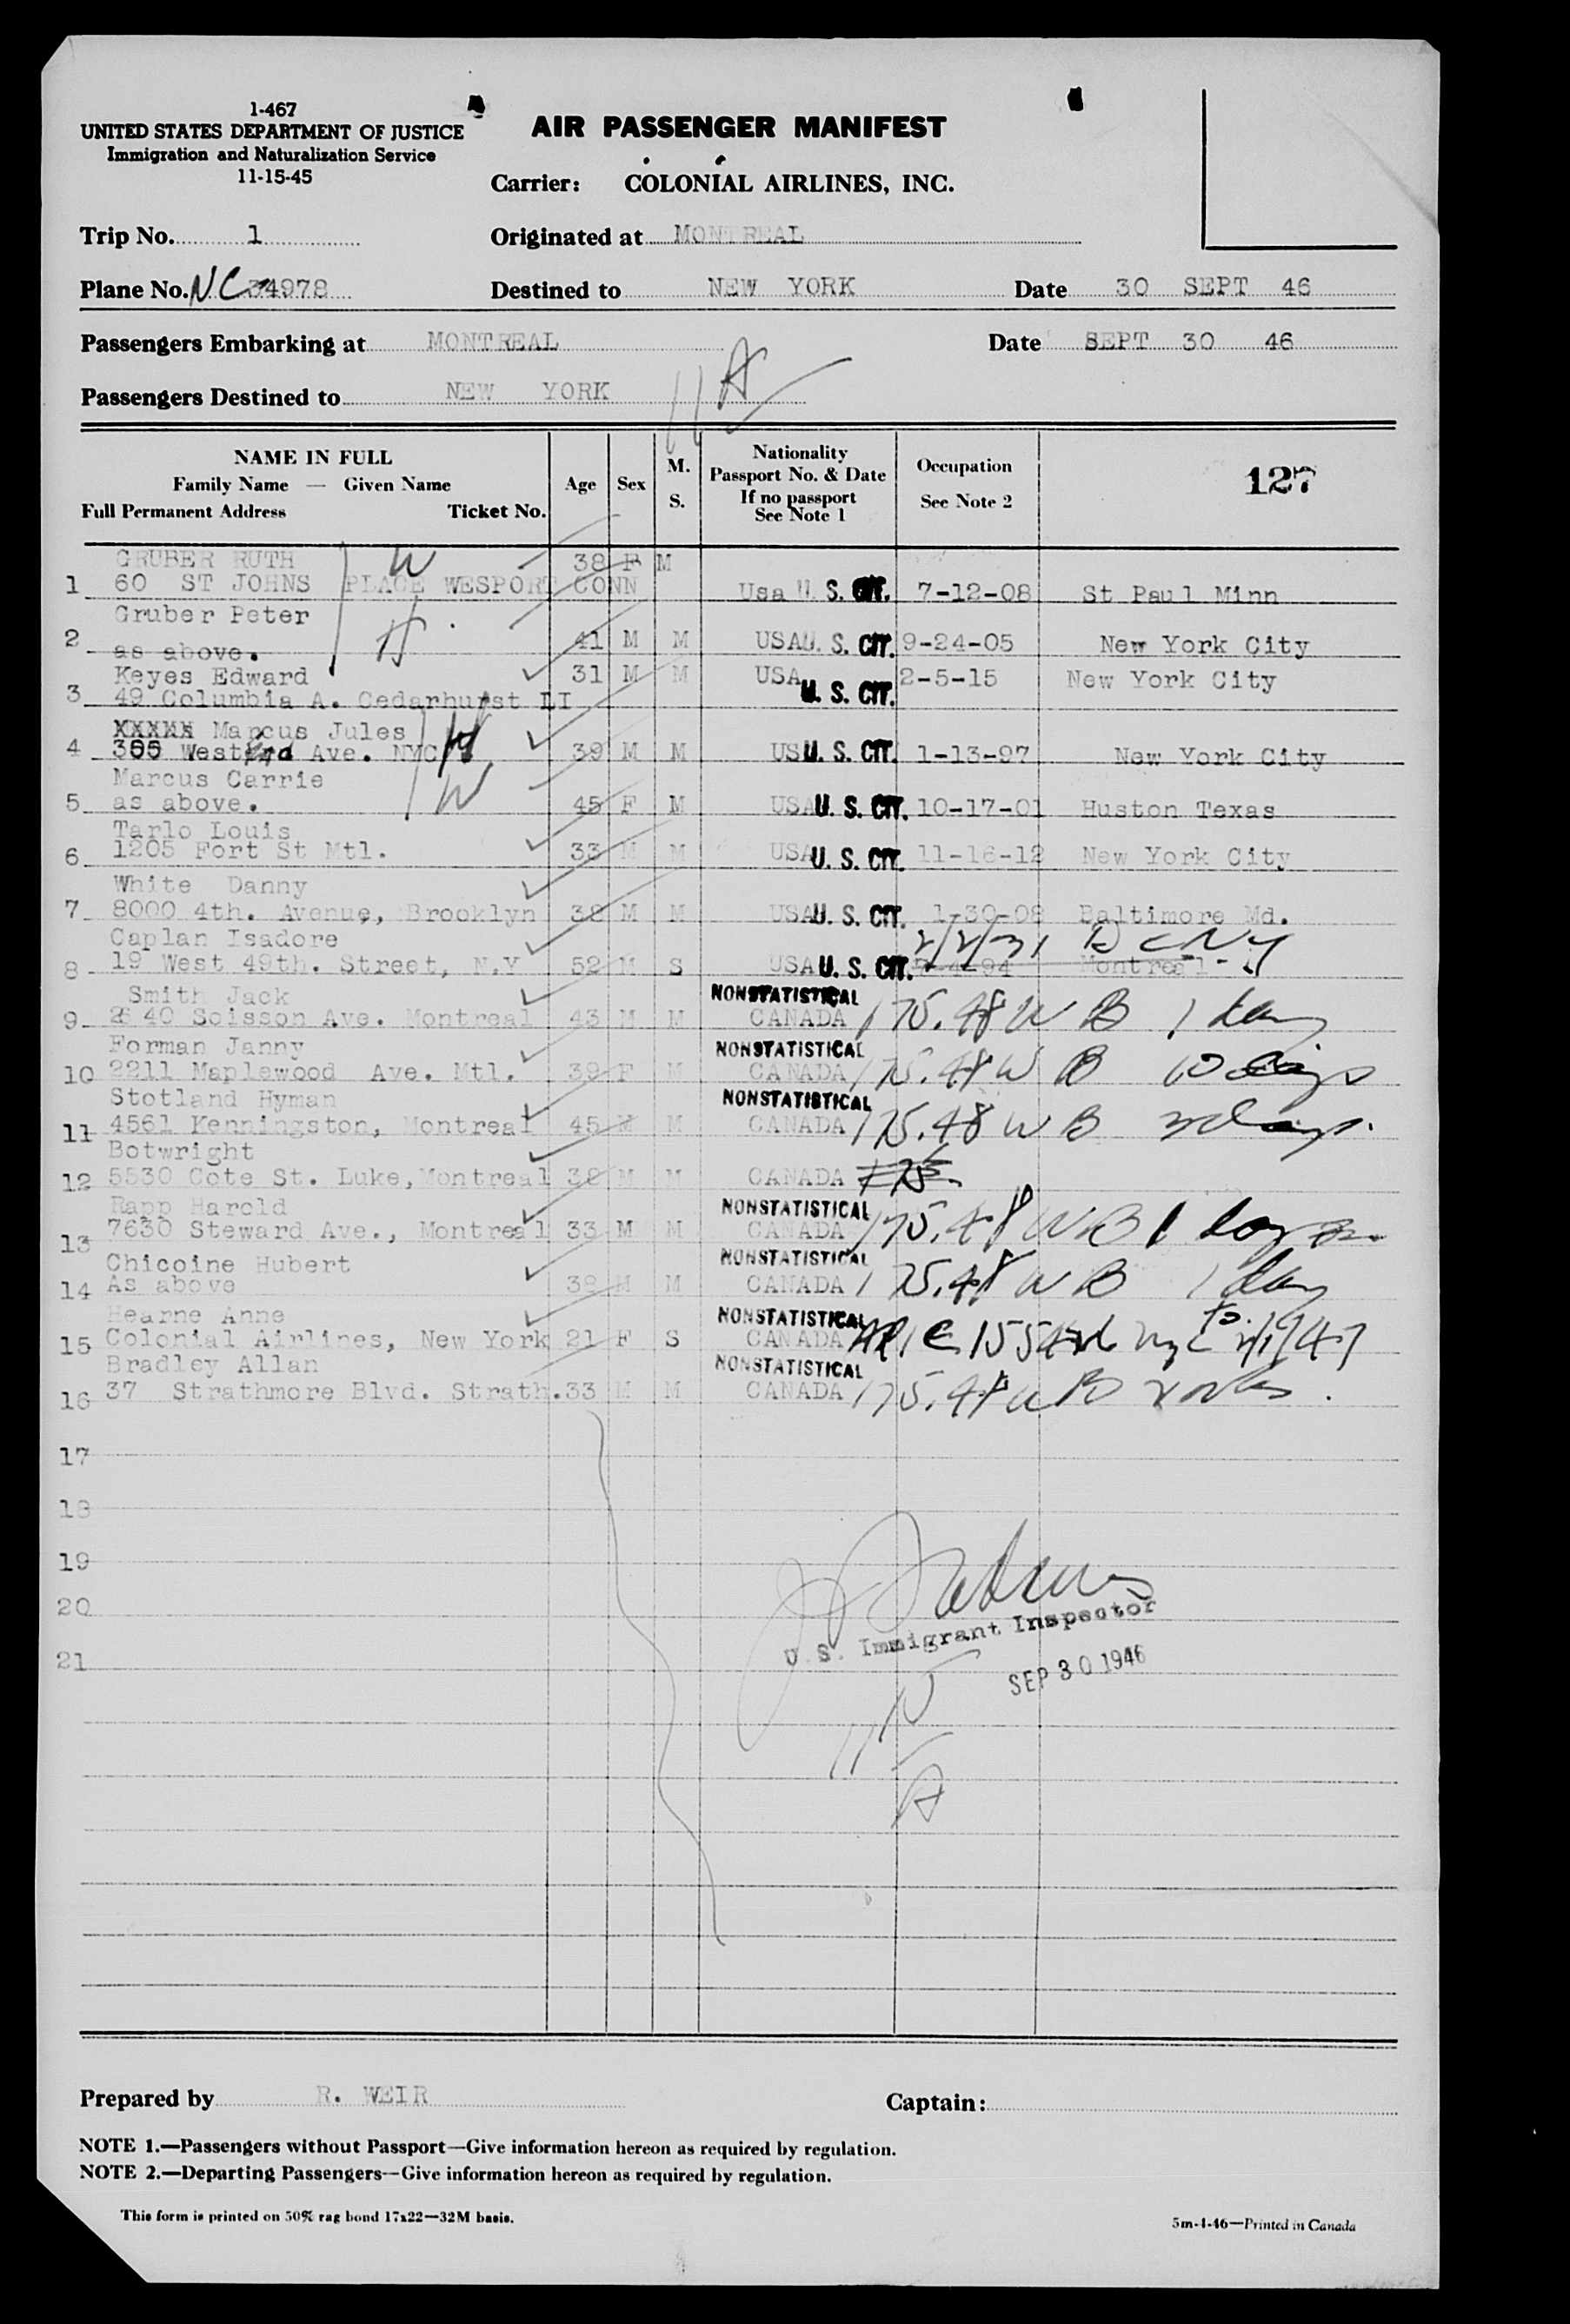 1-467
UNITED STATES DEPARTMENT OF JUSTICE
Immigration and Naturalization Service
11-15-45
AIR PASSENGER MANIFEST
Carrier: COLONIAL AIRLINES, INC.
Trip No. 1 Originated at MONTREAL
Plane No. NC 34978 Destined to NEW YORK Date 30 SEPT 46
Passengers Embarking at MONTREAL Date SEPT 30 46
Passengers Destined to NEW YORK
11 A
NAME IN FULL
Family Name — Given Name
Full Permanent Address Ticket No.
Age Sex M. S.
Nationality
Passport No. & Date
If no passport
See Note 1
Occupation
See Note 2
127
GRUBER RUTH W 38 F M
1 60 ST JOHNS PLACE WESPORT CONN Usa U. S. CIT. 7-12-08 St Paul Minn
Gruber Peter H
2 as above. 41 M M USA U. S. CIT. 9-24-05 New York City
Keyes Edward 31 M M USA 2-5-15 New York City
3 49 Columbia A. Cedarhurst LI U. S. CIT.
XXXXX Marcus Jules H
4 300 West End Ave. NYC 39 M M US U. S. CIT. 1-13-97 New York City
Marcus Carrie W
5 as above. 45 F M USA U. S. CIT. 10-17-01 Huston Texas
Tarlo Louis
6 1205 Fort St Mtl. 33 M M USA U. S. CIT. 11-16-12 New York City
White Danny
7 8000 4th. Avenue, Brooklyn 38 M M USA U. S. CIT. 1-30-08 Baltimore Md.
Caplan Isadore 2/2/31 DCNY
8 19 West 49th. Street, N.Y 52 M S USA U. S. CIT. Montreal
Smith Jack NONSTATISTICAL
9 2640 Soisson Ave. Montreal 43 M M CANADA 175.48 W B 1 day
Forman Janny NONSTATISTICAL
10 2211 Maplewood Ave. Mtl. 39 F M CANADA 175.48 W B 10 days
Stotland Hyman NONSTATISTICAL
11 4561 Kenningston, Montreal 45 M M CANADA 175.48 W B 3 days.
Botwright
12 5530 Cote St. Luke, Montreal 38 M M CANADA 175
Rapp Harold NONSTATISTICAL
13 7630 Steward Ave., Montreal 33 M M CANADA 175.48 W B 1 day
Chicoine Hubert NONSTATISTICAL
14 As above 38 M M CANADA 175.48 W B 1 day
Hearne Anne NONSTATISTICAL
15 Colonial Airlines, New York 21 F S CANADA
Bradley Allan NONSTATISTICAL
16 37 Strathmore Blvd. Strath. 33 M M CANADA 175.48 W B 2 wks.
17
18
19
20
21
U. S. Immigrant Inspector
SEP 30 1946
11
A
Prepared by R. WEIR Captain:
NOTE 1.—Passengers without Passport—Give information hereon as required by regulation.
NOTE 2.—Departing Passengers—Give information hereon as required by regulation.
This form is printed on 50% rag bond 17x22—32M basis.
5m-4-46—Printed in Canada